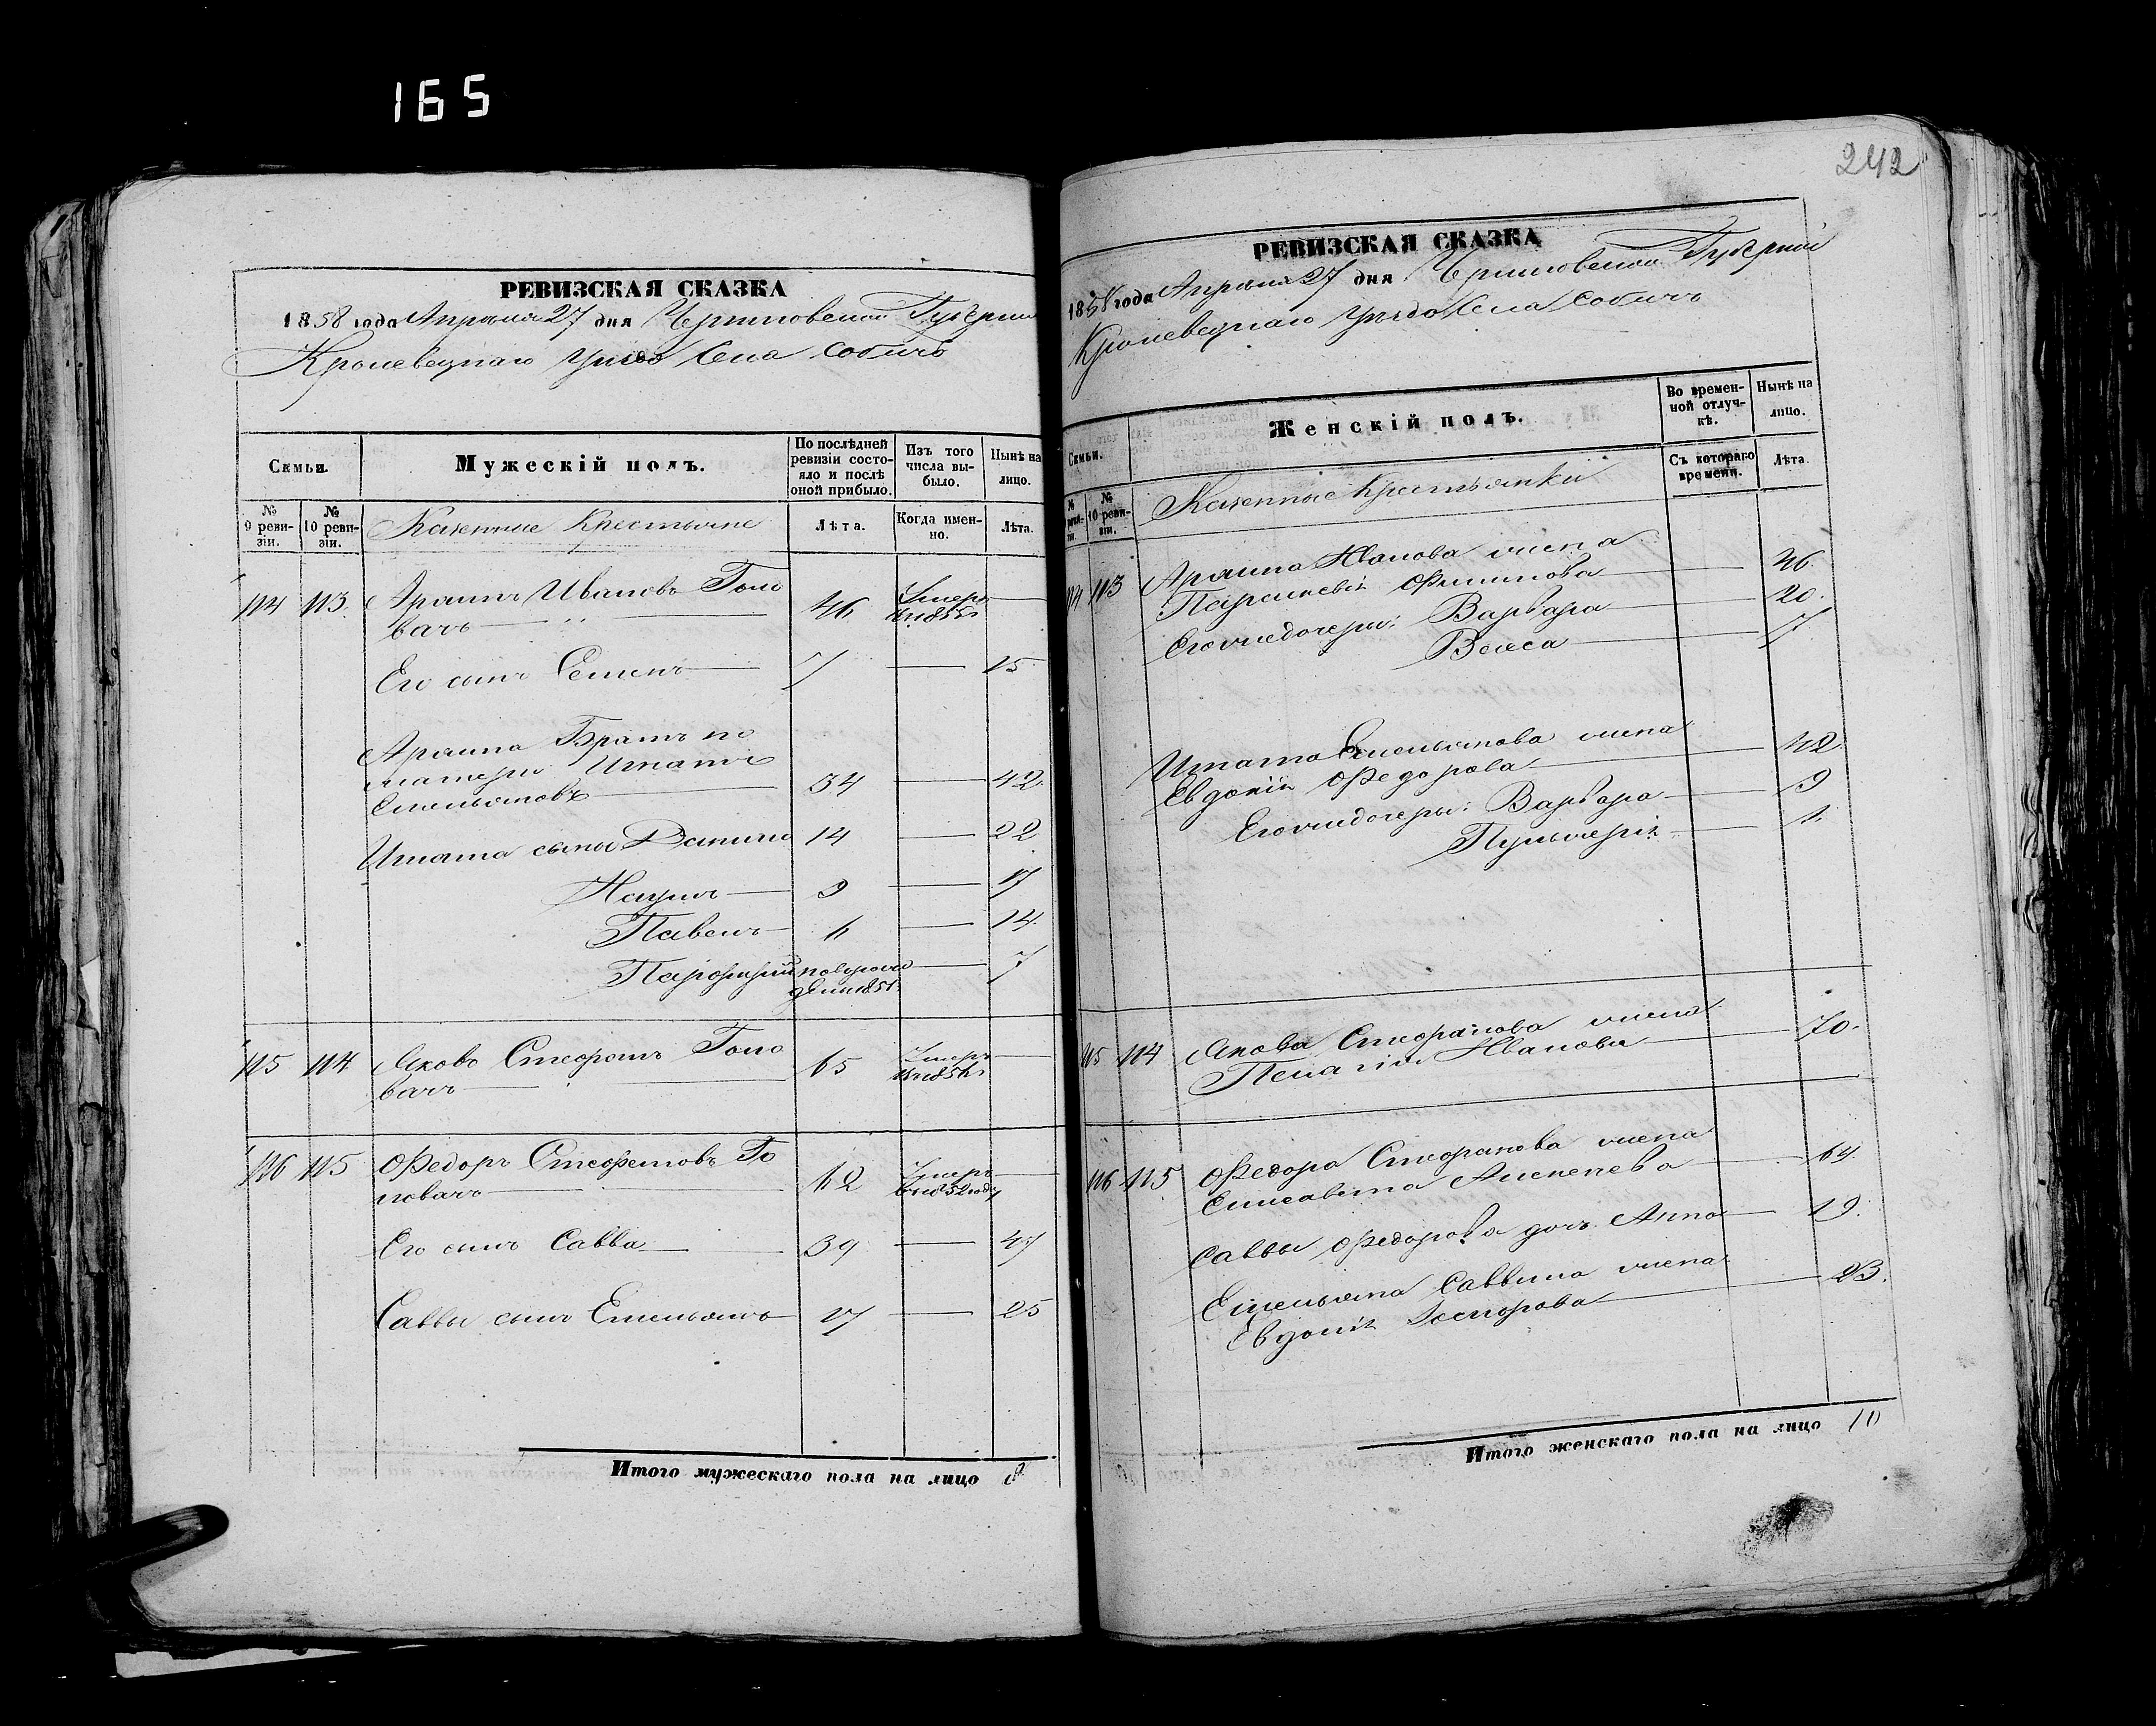 165
РЕВИЗСКАЯ СКАЗКА
1858 года Апреля 27 дня Черниговской Губерніи
Кролевецкаго уезда Села Собичъ
Семьи.
Мужескій полъ.
По послѣдней ревизіи состояло и послѣ оной прибыло.
Изъ того числа выбыло.
Нынѣ на лицо.
№ 9 ревизіи.
№ 10 ревизіи.
Казенные Крестьяне
Лѣта.
Когда именно.
Лѣта.
114 113 Ивановъ Голо 46 Умеръ
вачъ
Его сынъ Семенъ 7 15
Братъ по
матери Игнатъ
Емельяновъ 34 42
Игната сынъ Данило 14 22
Наумъ 9 17
Павелъ 6 14
Парфирій 7
115 114 Яковъ Стефановъ Голо 65 Умеръ
вачъ
116 115 Федоръ Стефановъ Го 62 Умеръ
ловачъ въ 1852 году
Его сынъ Савва 39 47
Саввы сынъ Емельянъ 17 25
Итого мужескаго пола на лицо 8
242
РЕВИЗСКАЯ СКАЗКА
1858 года Апреля 27 дня Черниговской Губерніи
Кролевецкаго уезда Села Собичъ
Семьи.
Женскій полъ.
Во временной отлучкѣ.
Нынѣ на лицо.
№ 10 ревизіи.
Казенные Крестьянки
Съ котораго времени.
Лѣта.
114 113 Иванова жена
Филипова 46
Его же дочери: Варвара 20
7
Игната Емельянова жена
Евдокія Федорова 42
Его же дочери: Варвара 9
Пульхерія
115 114 Якова Стефанова жена
Пелагія Иванова 70
116 115 Федора Стефанова жена
Елисавета Алексеева 64
Саввы Федорова дочь Анна 19
Емельяна Саввина жена
Евдокія 23
Итого женскаго пола на лицо 10